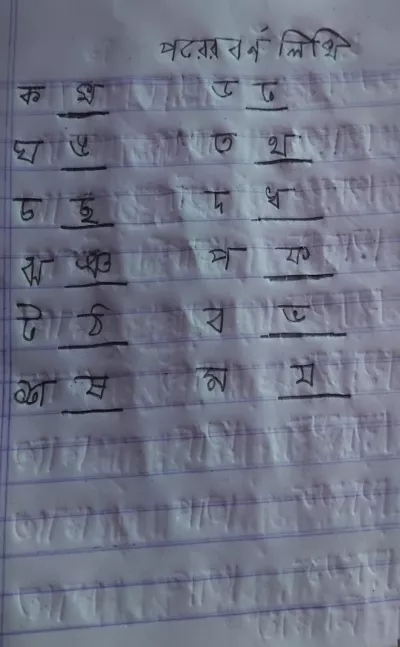 পরের বর্ন লিখি
ক খ ড ঢ
ঘ ঙ ত থ
চ ছ দ ধ
ঝ ঞ প ফ
ট ঠ ব ভ
শ ষ ম য